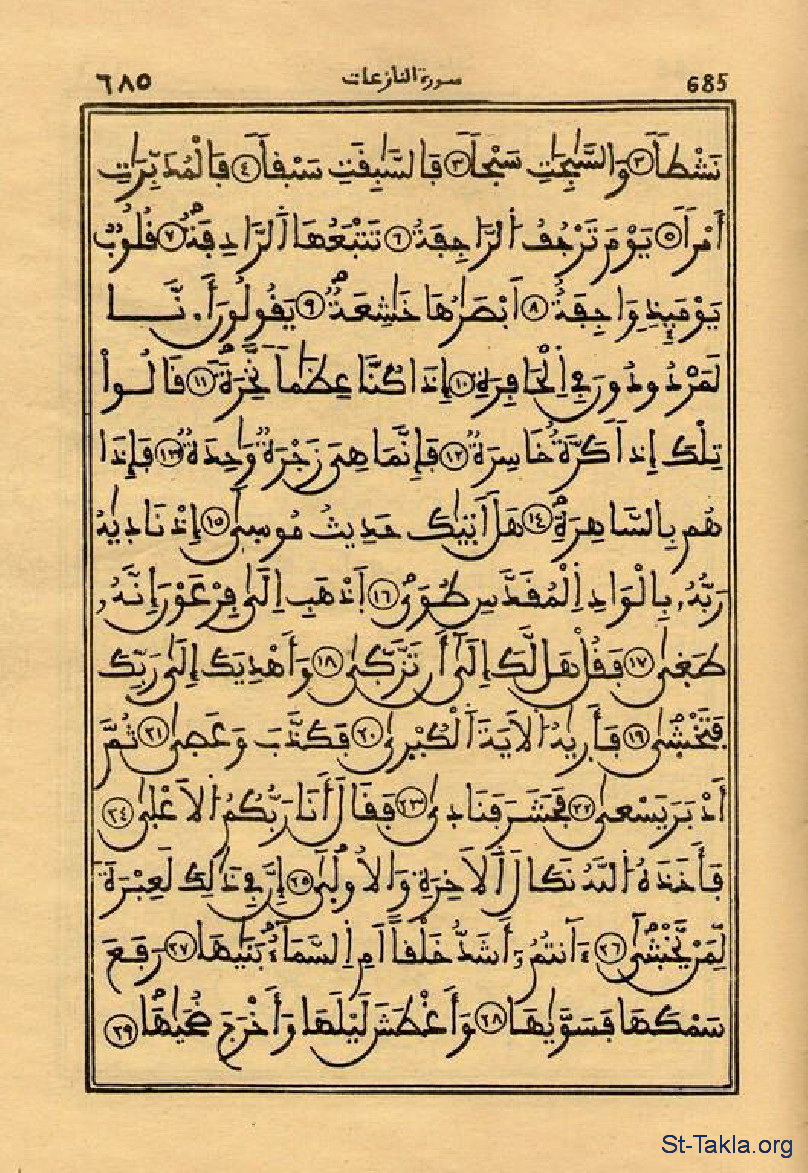 ٦٨٥ سورة النازعات 685
نَشْطاً ٢ وَالسَّٰبِحَٰتِ سَبْحاً ٣ فَالسَّٰبِقَٰتِ سَبْقاً ٤ فَالْمُدَبِّرَٰتِ
أَمْراً ٥ يَوْمَ تَرْجُفُ الرَّاجِفَةُ ٦ تَتْبَعُهَا الرَّادِفَةُ ٧ قُلُوبٌ
يَوْمَئِذٍ وَاجِفَةٌ ٨ اَبْصَٰرُهَا خَٰشِعَةٌ ٩ يَقُولُونَ أَ.نَّا
لَمَرْدُودُونَ فِي اِلْحَافِرَةِ ١٠ إِذَا كُنَّا عِظَٰماً نَّخِرَةً ١١ قَالُواْ
تِلْكَ إِذاً كَرَّةٌ خَاسِرَةٌ ١٢ فَإِنَّمَا هِيَ زَجْرَةٌ وَٰحِدَةٌ ١٣ فَإِذَا
هُم بِالسَّاهِرَةِ ١٤ هَلَ اَتٰيكَ حَدِيثُ مُوسِىٰ ١٥ إِذْ نَادٰيهُ
رَبُّهُۥ بِالْوَادِ اِلْمُقَدَّسِ طُوىٰ ١٦ اَذْهَبِ اِلَىٰ فِرْعَوْنَ إِنَّهُۥ
طَغىٰ ١٧ فَقُلْ هَل لَّكَ إِلَىٰ أَن تَزَّكّىٰ ١٨ وَأَهْدِيَكَ إِلَىٰ رَبِّكَ
فَتَخْشىٰ ١٩ فَأَرٰيهُ الَايَةَ اَلْكُبْرىٰ ٢٠ فَكَذَّبَ وَعَصىٰ ٢١ ثُمَّ
أَدْبَرَ يَسْعىٰ ٢٢ فَحَشَرَ فَنَادىٰ ٢٣ فَقَالَ أَنَا رَبُّكُمُ الَاعْلىٰ ٢٤
فَأَخَذَهُ اللَّهُ نَكَالَ اَلَاخِرَةِ وَالُاولىٰ ٢٥ إِنَّ فِي ذَٰلِكَ لَعِبْرَةً
لِّمَنْ يَّخْشىٰ ٢٦ ءَآنتُمُۥ أَشَدُّ خَلْقاً اَمِ اِلسَّمَآءُ بَنٰيهَا ٢٧ رَفَعَ
سَمْكَهَا فَسَوّٰيهَا ٢٨ وَأَغْطَشَ لَيْلَهَا وَأَخْرَجَ ضُحٰيهَا ٢٩
St-Takla.org